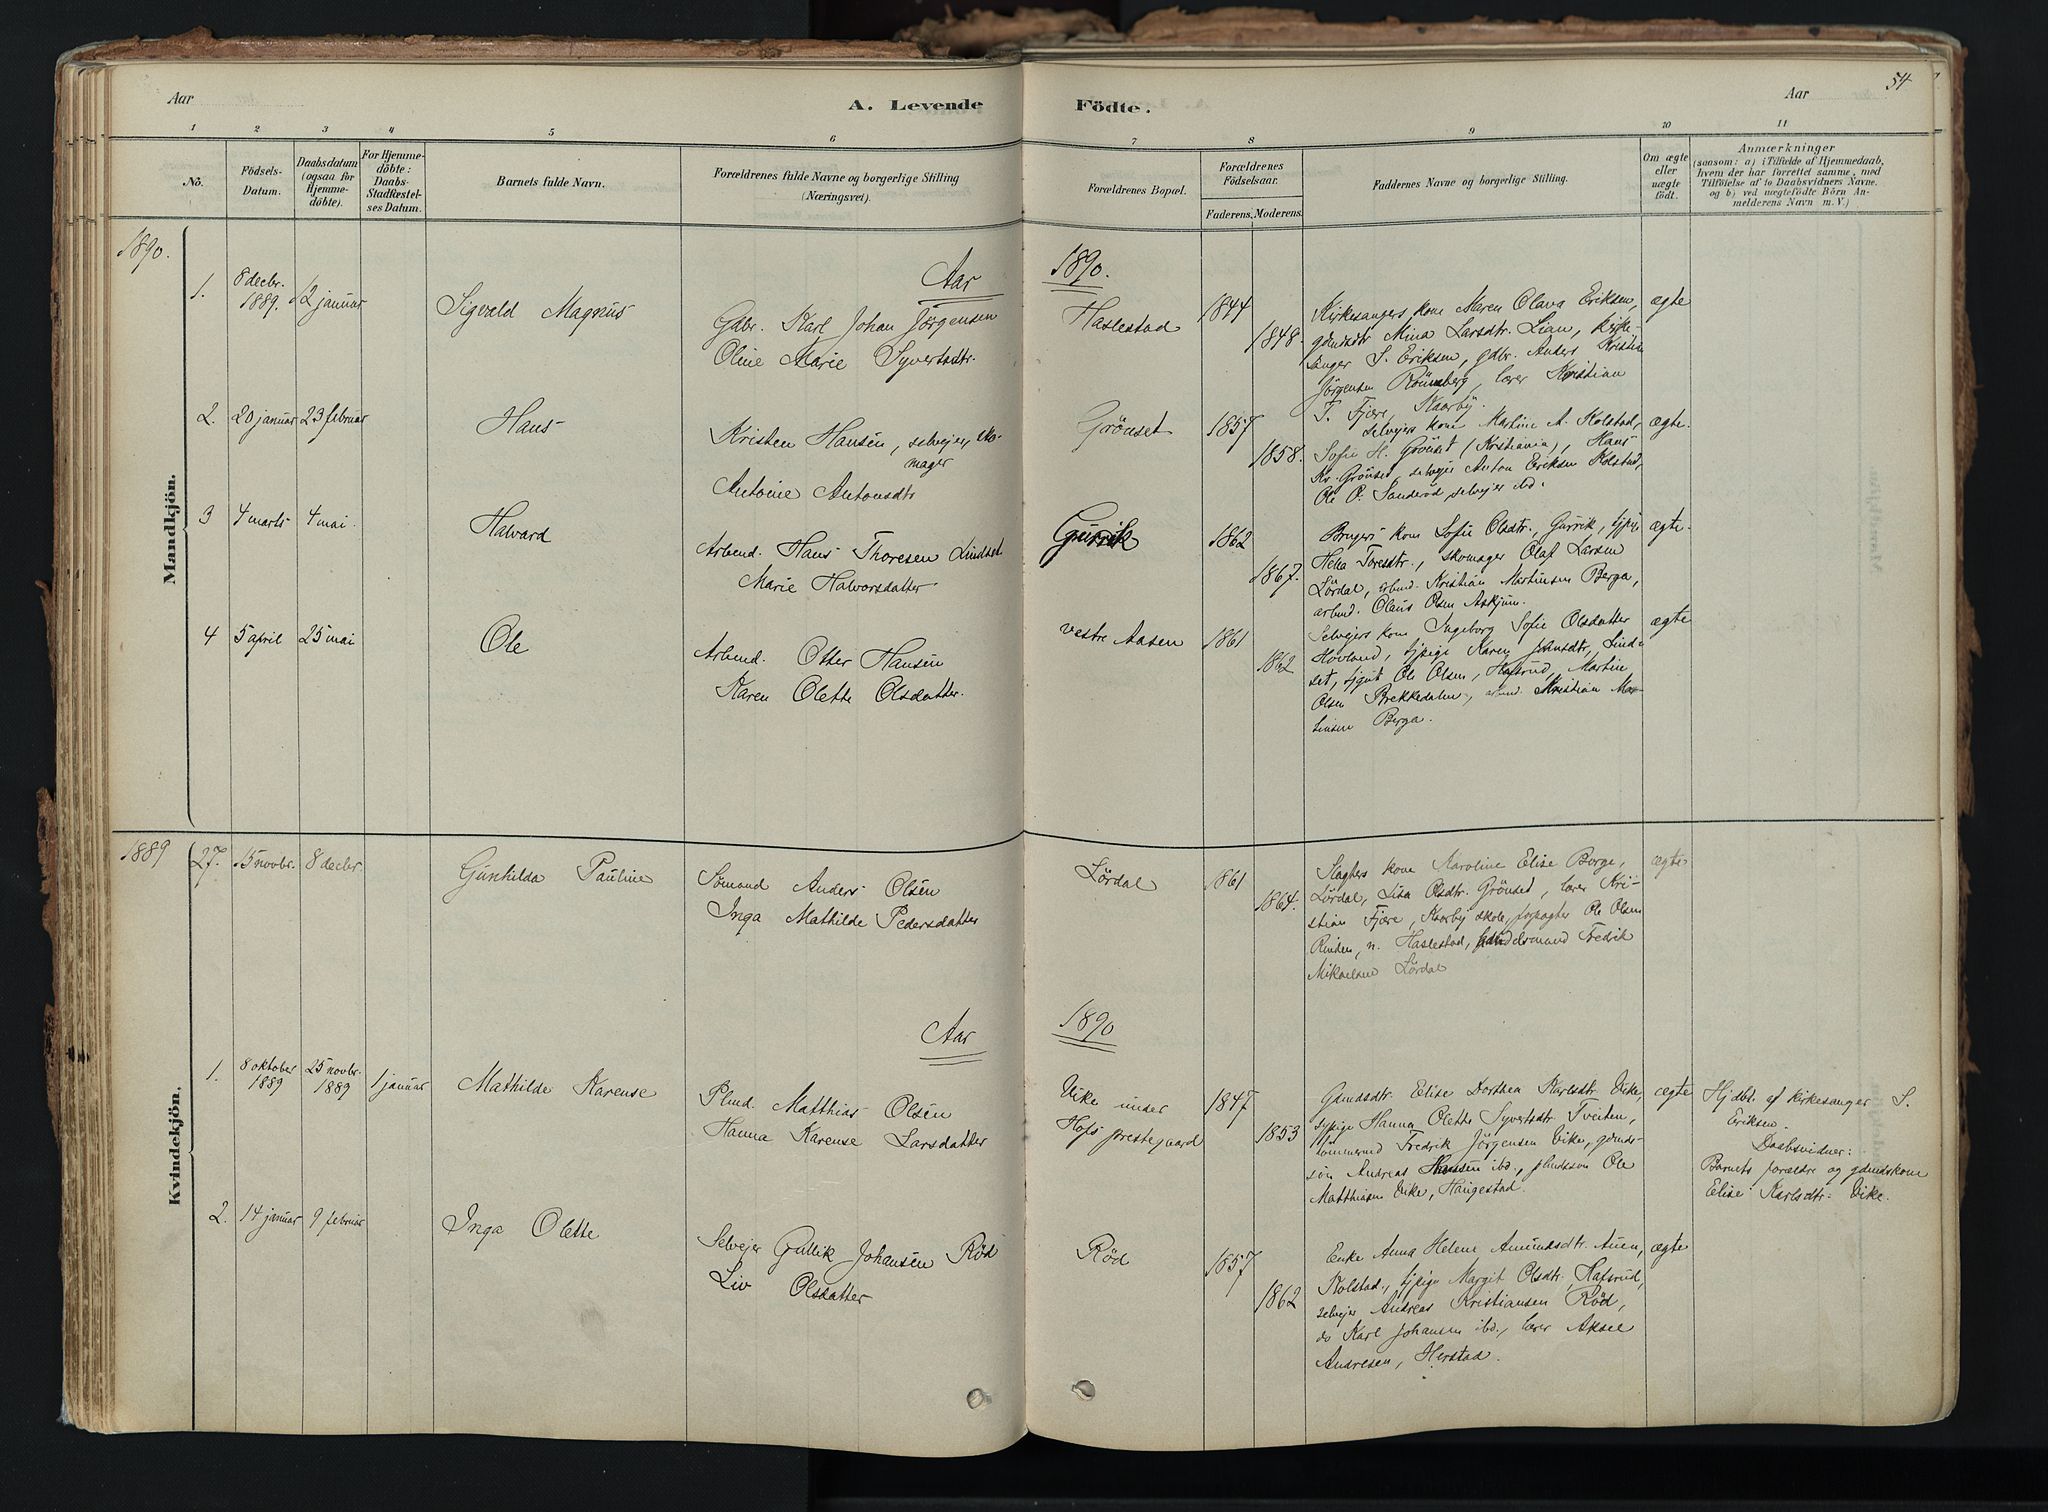 Aar
A. Levende
Födte.
Aar
54
1 2 3 4 5 6 7 8 9 10 11
No.
Födsels-
Datum.
Daabsdatum
(ogsaa for
Hjemme-
döbte).
For Hjemme-
döbte:
Daabs-
Stadfæstel-
ses Datum.
Barnets fulde Navn.
Forældrenes fulde Navne og borgerlige Stilling
(Næringsvei).
Forældrenes Bopæl.
Forældrenes
Födselsaar.
Faderens. Moderens.
Faddernes Navne og borgerlige Stilling.
Om ægte
eller
uægte
födt.
Anmærkninger
(saasom: a) i Tilfælde af Hjemmedaab,
hvem der har forrettet samme, med
Tilföielse af to Daabsvidners Navne.
og b) ved uægtefödte Börn An-
melderens Navn m. V.)
Mandkjön.
1890.
Aar 1890.
1. 8 decbr. 1889. 12 januar
Sigvald Magnus
Gdbr. Karl Johan Jörgensen
Oline Marie Syvertsdtr.
Haslestad
1844
1848.
Kirkesangers kone Maren Olava Eriksen,
gdmdsdtr Mina Larsdtr. Lian, kirke-
sanger S. Eriksen, gdbr. Anders Kristian
Jörgensen Rönneberg, lærer Kristian
T. Fjære, Kaarby.
ægte
2. 20 januar 23 februar
Hans
Kristen Hansen, selvejer, sko-
mager
Antonie Antonsdtr
Grönset
1857
1858.
selvejers kone Martine A. Kolstad,
Sofie H. Grönset (Kristiania), Hans
Kr. Grönset, selvejer Anton Eriksen Kolstad,
Ole P. Sanderöd, selvejer ibd.
ægte.
3 4 marts 4 mai.
Halvard
Arbmd. Hans Thoresen Lindset
Marie Halvorsdatter
Gurrik
1862
1867.
Brugers kone Sofie Olsdtr., Gurrik, tjpige
Helia Toresdtr., skomager Olaf Larsen
Lördal, arbmd. Kristian Martinsen Berga,
arbmd. Olaus Olsen Askjum.
ægte.
4 5 april 25 mai
Ole
Arbmd. Otter Hansen
Karen Olette Olsdatter.
vestre Aasen
1861
1862
Selvejers kone Ingeborg Sofie Olsdatter
Hovland, tjpige Karen Johnsdtr., Lind-
set, tjgut Ole Olsen, Hafsrud, Martin
Olsen Brekkedalen, arbmd. Kristian Mar-
tinsen Berga.
ægte
Kvindekjön.
1889
27. 15 novbr. 8 decbr
Gunhilda Pauline
Sömand Anders Olsen
Inga Mathilde Pedersdatter
Lördal
1861
1864.
Slagters kone Karoline Elise Borge,
Lördal, Lisa Olsdtr. Grönset, lærer Kri-
stian Fjære, Kaarby skole, forpagter Ole Olsen
Rinden, n. Haslestad, handelsmand Fredrik
Mikaelsen Lördal
ægte
Aar 1890
1. 8 oktober 1889 25 novbr. 1889 1 januar
Mathilde Karense
Plmd. Matthias Olsen
Hanna Karense Larsdatter
Vike under
Hofs prestegaard
1847
1853
Gdmdsdtr. Elise Dorthea Karlsdtr. Vike,
tjpige Hanna Olette Syvertsdtr. Tveiten,
tömmermd Fredrik Jörgensen Vike, gdmds-
sön Andreas Hansen ibd., plmdssön Ole
Matthiasen Vike, Haugestad.
ægte
Hjdbt. af kirkesanger S.
Eriksen.
Daabsvidner:
Barnets forældre og gdmdskone
Elise Karlsdtr. Vike.
2. 14 januar 9 februar
Inga Olette
Selvejer Gullik Johansen Röd
Liv Olsdatter
Röd
1857
1862
Enke Anna Helene Amundsdtr. Auen,
Kolstad, tjpige Margit Olsdtr., Hafsrud,
selvejer Andreas Kristiansen Röd,
do Karl Johansen ibd., lærer Aksel
Andresen, Herstad.
ægte